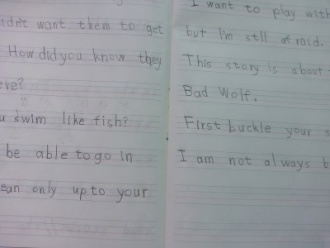 didn't want them to get
How did you know they
ere?
u swim like fish?
be able to go in
ean only up to your
I want to play with
but I'm still afraid.
This story is about
Bad Wolf.
First buckle your s
I am not always b